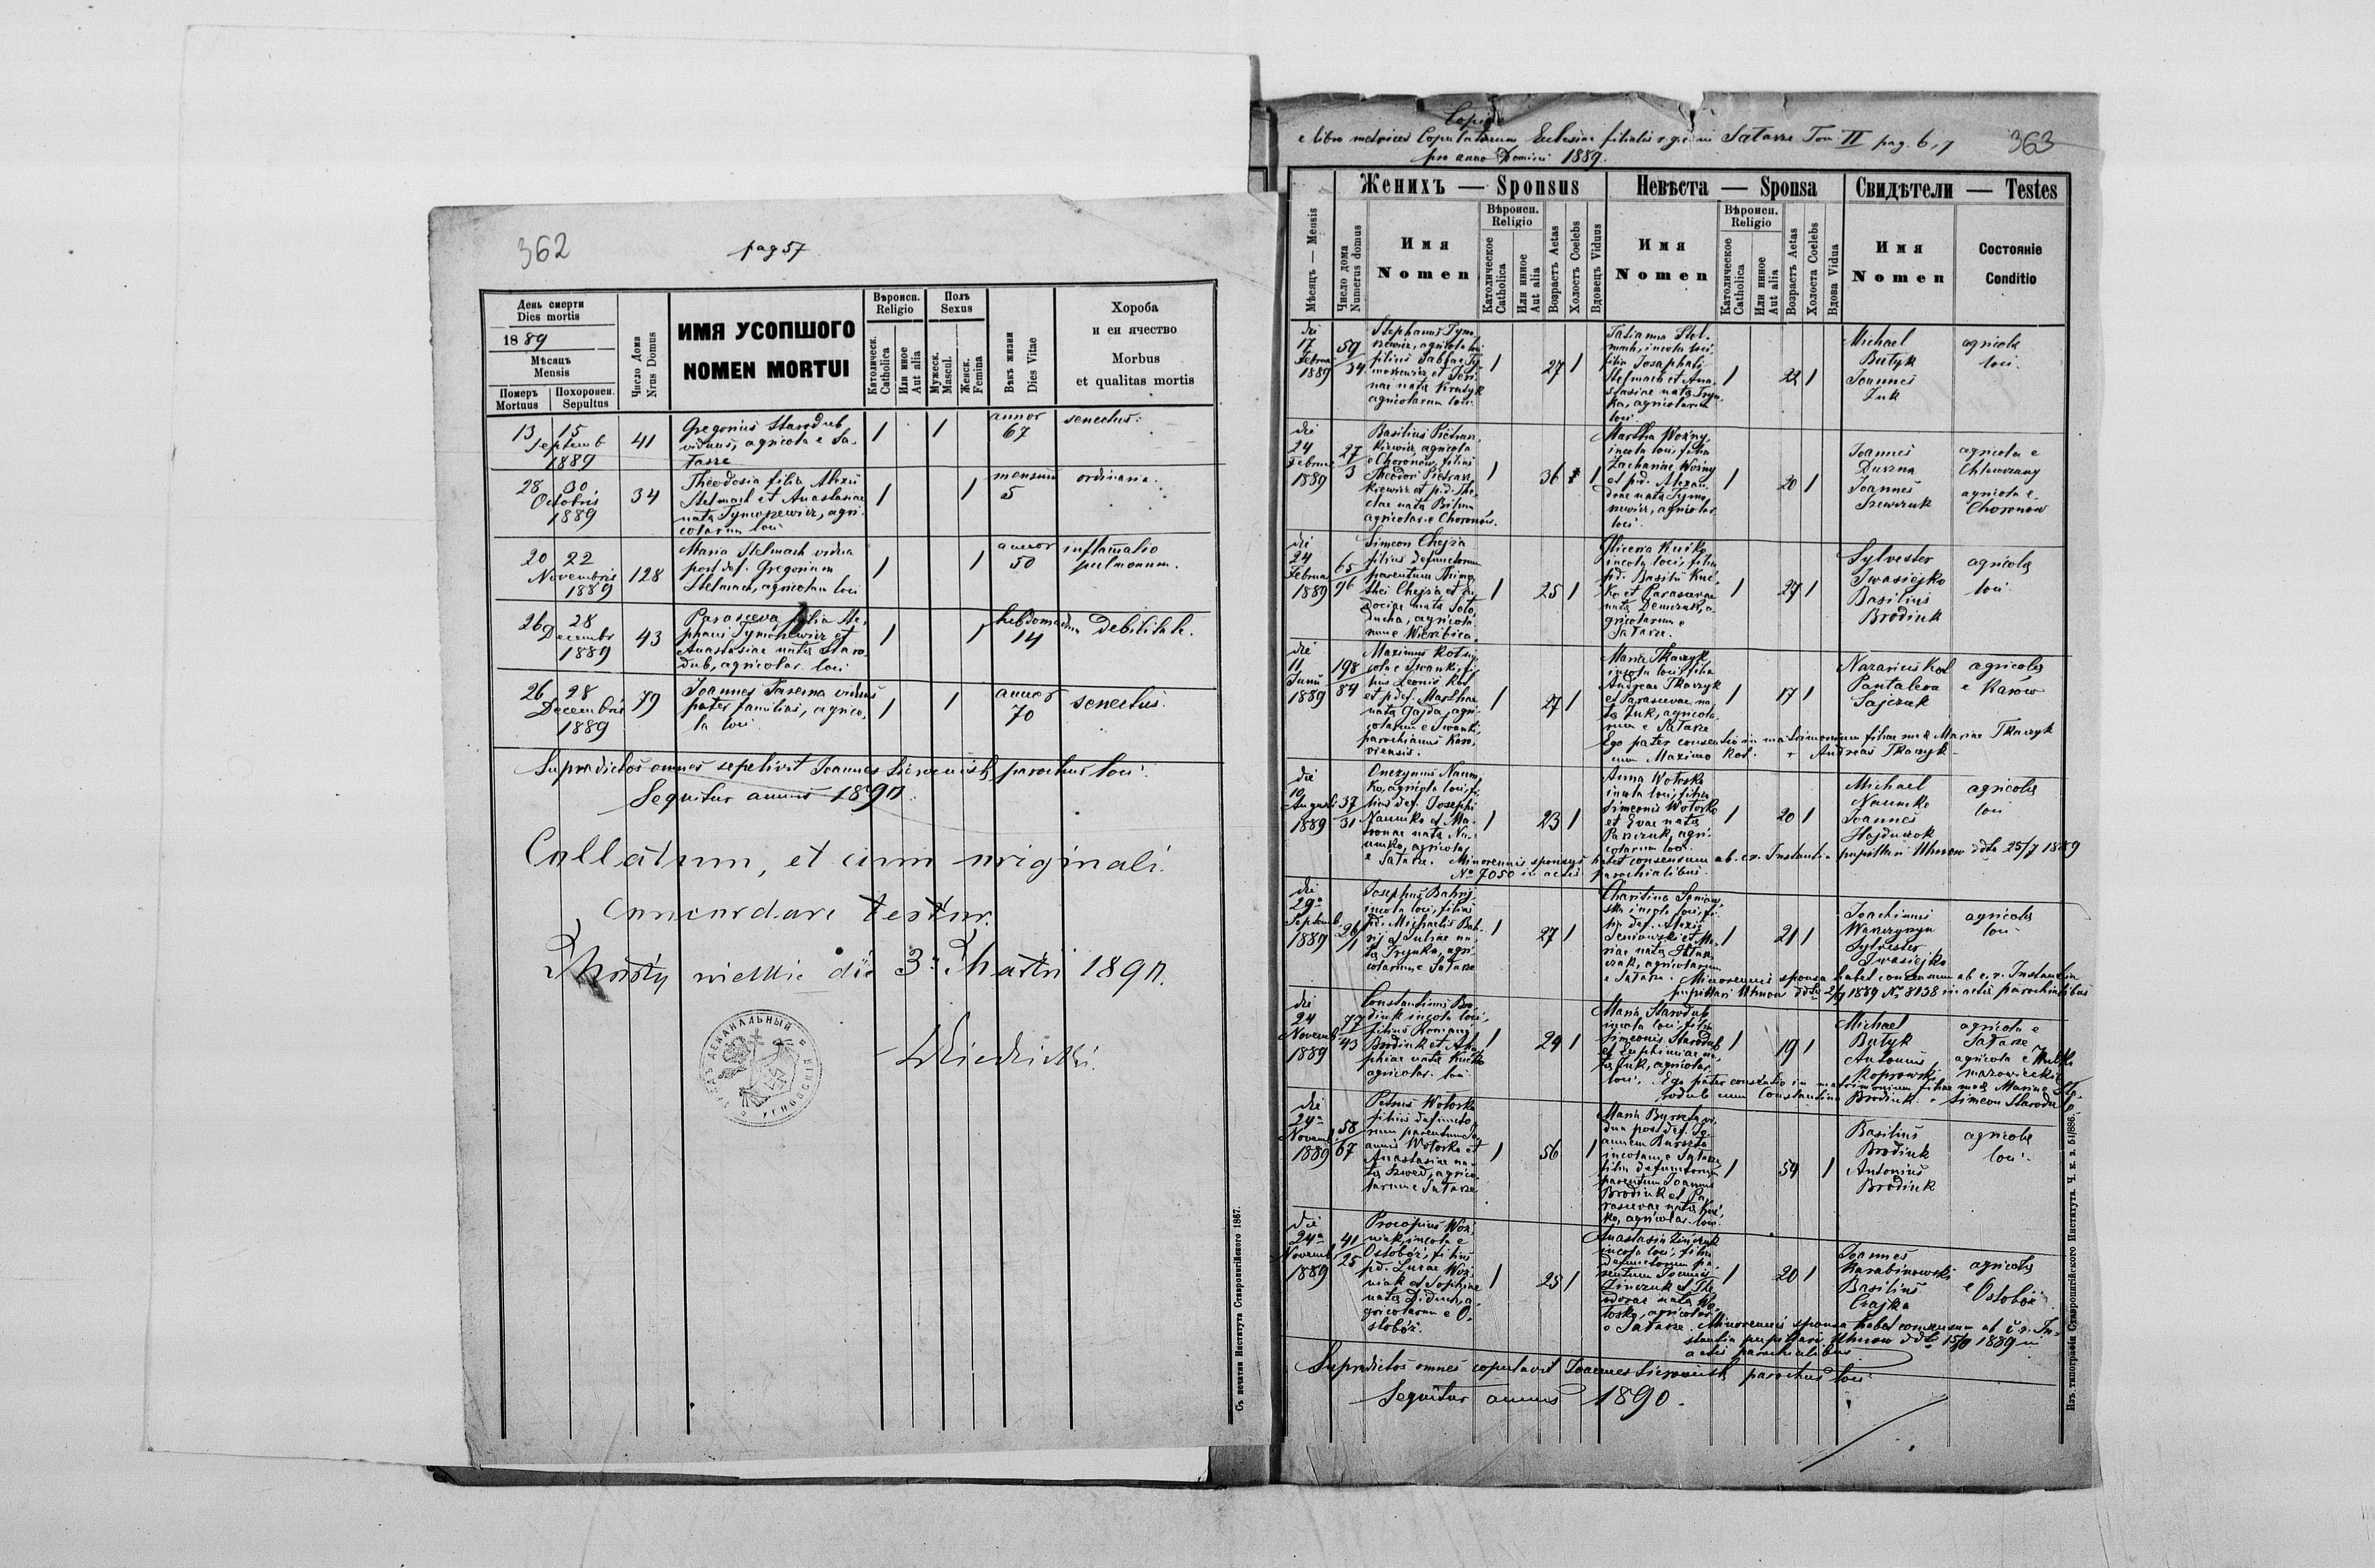 362
pag 57
День смерти
Dies mortis
1889
Мѣсяцъ
Mensis
Померъ
Mortuus
Похоронен.
Sepultus
Число Дома
Nrus Domus
ИМЯ УСОПШОГО
NOMEN MORTUI
Вѣроисп.
Religio
Католическ.
Catholica
Или иное
Aut alia
Полъ
Sexus
Мужеск.
Mascul.
Женск.
Femina
Вѣкъ жизни
Dies Vitae
Хороба
и еи ячество
Morbus
et qualitas mortis
13 15
Septemb
1889
41
Gregorius Starodub,
viduus, agricola e Sa-
tarze
1 1
annor
67
senectus.
28 30
Octobris
1889
34
Theodosia filia Alexii
Stelmach et Anastasiae
nata Tymoszewicz, agri-
colarum loci
1 1
mensium
5
ordinaria.
20 22
Novembris
1889
128
Maria Stelmach vidua
post def. Gregorium
Stelmach, agricolam loci
1 1
annor
50
inflamatio
pulmonum.
26 28
Decembr
1889
43
Parasceva, filia Ste-
phani Tymoszewicz et
Anastasiae nata Staro-
dub, agricolar. loci
1 1
hebdomadum
14
debilitate.
26 28
Decembris
1889
79
Joannes viduus
pater familias, agrico-
la loci
1 1
annor
70
senectus.
Supradictos omnes sepelivit Joannes parochus loci.
Sequitur annus 1890.
Collatum, et cum originali
concordare testor.
die 3 Martii 1890.
Съ печатни Института Ставропигійского 1867.
Copia
e libro metrices Copulatorum Ecclesiae filialis r.g.c. in Satarze Tom II pag. 6, 7
pro anno Domini 1889.
363
Женихъ — Sponsus
Невѣста — Sponsa
Свидѣтели — Testes
Мѣсяцъ — Mensis
Число дома
Numerus domus
Имя
Nomen
Вѣроисп.
Religio
Католическое
Catholica
Или инное
Aut alia
Возрастъ Aetas
Холостъ Coelebs
Вдовецъ Viduus
Имя
Nomen
Вѣроисп.
Religio
Католическое
Catholica
Или инное
Aut alia
Возрастъ Aetas
Холоста Coelebs
Вдова Vidua
Имя
Nomen
Состояніе
Conditio
die
17
Februar
1889
59
34
Stephanus Tymo-
szewicz, agricola loci
filius Sabbae Ty-
moszewicz et
agricolarum loci
1 27 1
Tatianna Stel-
mach, incola loci
filia Josaphati
Stelmach et Ana-
stasiae nata Tryn-
ka, agricolarum
loci
1 22 1
Michael
Butyk
Joannes
Zuk
agricolae
loci.
die
24
Februar
1889
27
3
Basilius Pietrasz-
kiewicz agricola
e Choronów, filius
Theodori Pietrasz-
kiewicz et p.d. The-
clae nata
agricolar. e Choronów.
1 36 1
Martha Wozny
incola loci, filia
Zachariae Wozny
et p.d. Alexan-
drae nata Tymo-
szewicz, agricolar.
loci
1 20 1
Joannes
Joannes
Szewczuk
agricola e
agricola e
Choronów
die
24
Februar
1889
65
96
Simeon
filius defunctorum
parentum Thimo-
thei et Eu-
dociae nata Soło-
ducha, agricola-
rum e Wierzbica.
1 25 1
Glicena Kućko
incola loci, filia
p.d. Basilii Kuć-
ko et Parascevae
nata Demczuk, a-
gricolarum e
Satarze.
1 27 1
Sylvester
Iwasiejko
Basilius
Brodiuk
agricolae
loci
die
11
Junii
1889
198
84
Maximus Kot agri-
cola e Iwanki, fi-
lius Leonis Kot
et p.def. Marthae
nata Gajda, agri-
colarum e Iwanki,
parochianus Karo-
viensis.
1 27 1
Maria Tkaczyk
incola loci, filia
Andreae Tkaczyk
et Parascevae na-
ta Zuk, agricola-
rum e Satarze
1 17 1
Nazarius Kot
Pantaleon
Sajczuk
agricolae
e Karów
Ego pater consentio in matrimonium filiae meae Mariae Tkaczyk
cum Maximo Kot. + Andreas Tkaczyk
die
10
Augusti
1889
37
31
Onezymus Naum-
ko, agricola loci, fi-
lius def. Josephi
Naumko et Ma-
tronae nata Na-
umko, agricolar.
e Satarze.
1 23 1
Anna Wotosko
incola loci, filia
Simeonis Wotosko
et Evae nata
Panczuk, agri-
colarum loci
1 20 1
Michael
Naumko
Joannes
Hajduczok
agricolae
loci
Minorennis sponsus habet consensum ab c.r. Instantia pupillari Uhnow ddto 25/7 1889
No 7050 in actis parochialibus.
die
29a
Septemb
1889
26
1
Josephus Batryj
incola loci, filius
p.d. Michaelis Bat-
ryj et Juliae na-
ta Trynka, agri-
colarum e Satarze
1 27 1
Charitina Seniow-
ska incola loci, fi-
lia def. Alexii
Seniowski et Ma-
riae nata
agricolarum
e Satarze.
1 21 1
Joachimus
Sylvester
Iwasiejko
agricolae
loci
Minorennis sponsa habet consensum ab c.r. Instantia
pupillari Uhnow ddto 2/9 1889 No 8138 in actis parochialibus
die
24
Novemb
1889
77
43
Constantinus Bro-
diuk incola loci,
filius Romani
Brodiuk et Aga-
phiae nata Kućko
agricolar. loci
1 24 1
Maria Starodub
incola loci, filia
Simeonis Starodub
et Euphemiae na-
ta Zuk, agricolar.
loci.
1 19 1
Michael
Butyk
Antonius
Koprowski
agricola e
Satarze
agricola e
Ego pater consentio in matrimonium filiae meae Mariae Sta-
rodub cum Constantino Brodiuk. + Simeon Starodub
die
24a
Novemb
1889
58
67
Petrus Wotosko
filius defuncto-
rum parentum Jo-
annis Wotosko et
Anastasiae na-
ta Szwed, agrico-
larum e Satarze
1 56 1
Maria vi-
dua post def. Jo-
annem
incolam e Satarze
filia defunctorum
parentum Joannis
Brodiuk et Pa-
rascevae nata Kuć-
ko, agricolar. loci
1 54 1
Basilius
Brodiuk
Antonius
Brodiuk
agricolae
loci
die
24a
Novemb
1889
41
25
Procopius Woź-
niak, incola e
Ostobóż, filius
p.d. Lucae Woź-
niak et Sophiae
nata a-
gricolarum e O-
stobóż.
1 25 1
Anastasia Zinczuk
incola loci, filia
defunctorum pa-
rentum Joannis
Zinczuk et The-
odorae nata Wo-
tosko, agricolar.
e Satarze.
1 20 1
Joannes
Karabinowski
Basilius
Czajka
agricolae
e Ostobóż
Minorennis sponsa habet consensum ab c.r. In-
stantia pupillari Uhnow ddto 1889 in
actis parochialibus
Supradictos omnes copulavit Joannes parochus loci
Sequitur annus 1890.
Изъ типографіи Ставропигійского Института. Ч. к. з. 51/886.